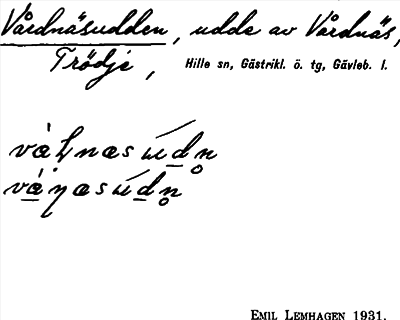 Vårdnäsudden, udde av Vårdnäs,
Trödje, Hille sn, Gästrikl. ö. tg, Gävleb. l.
EMIL LEMHAGEN 1931.